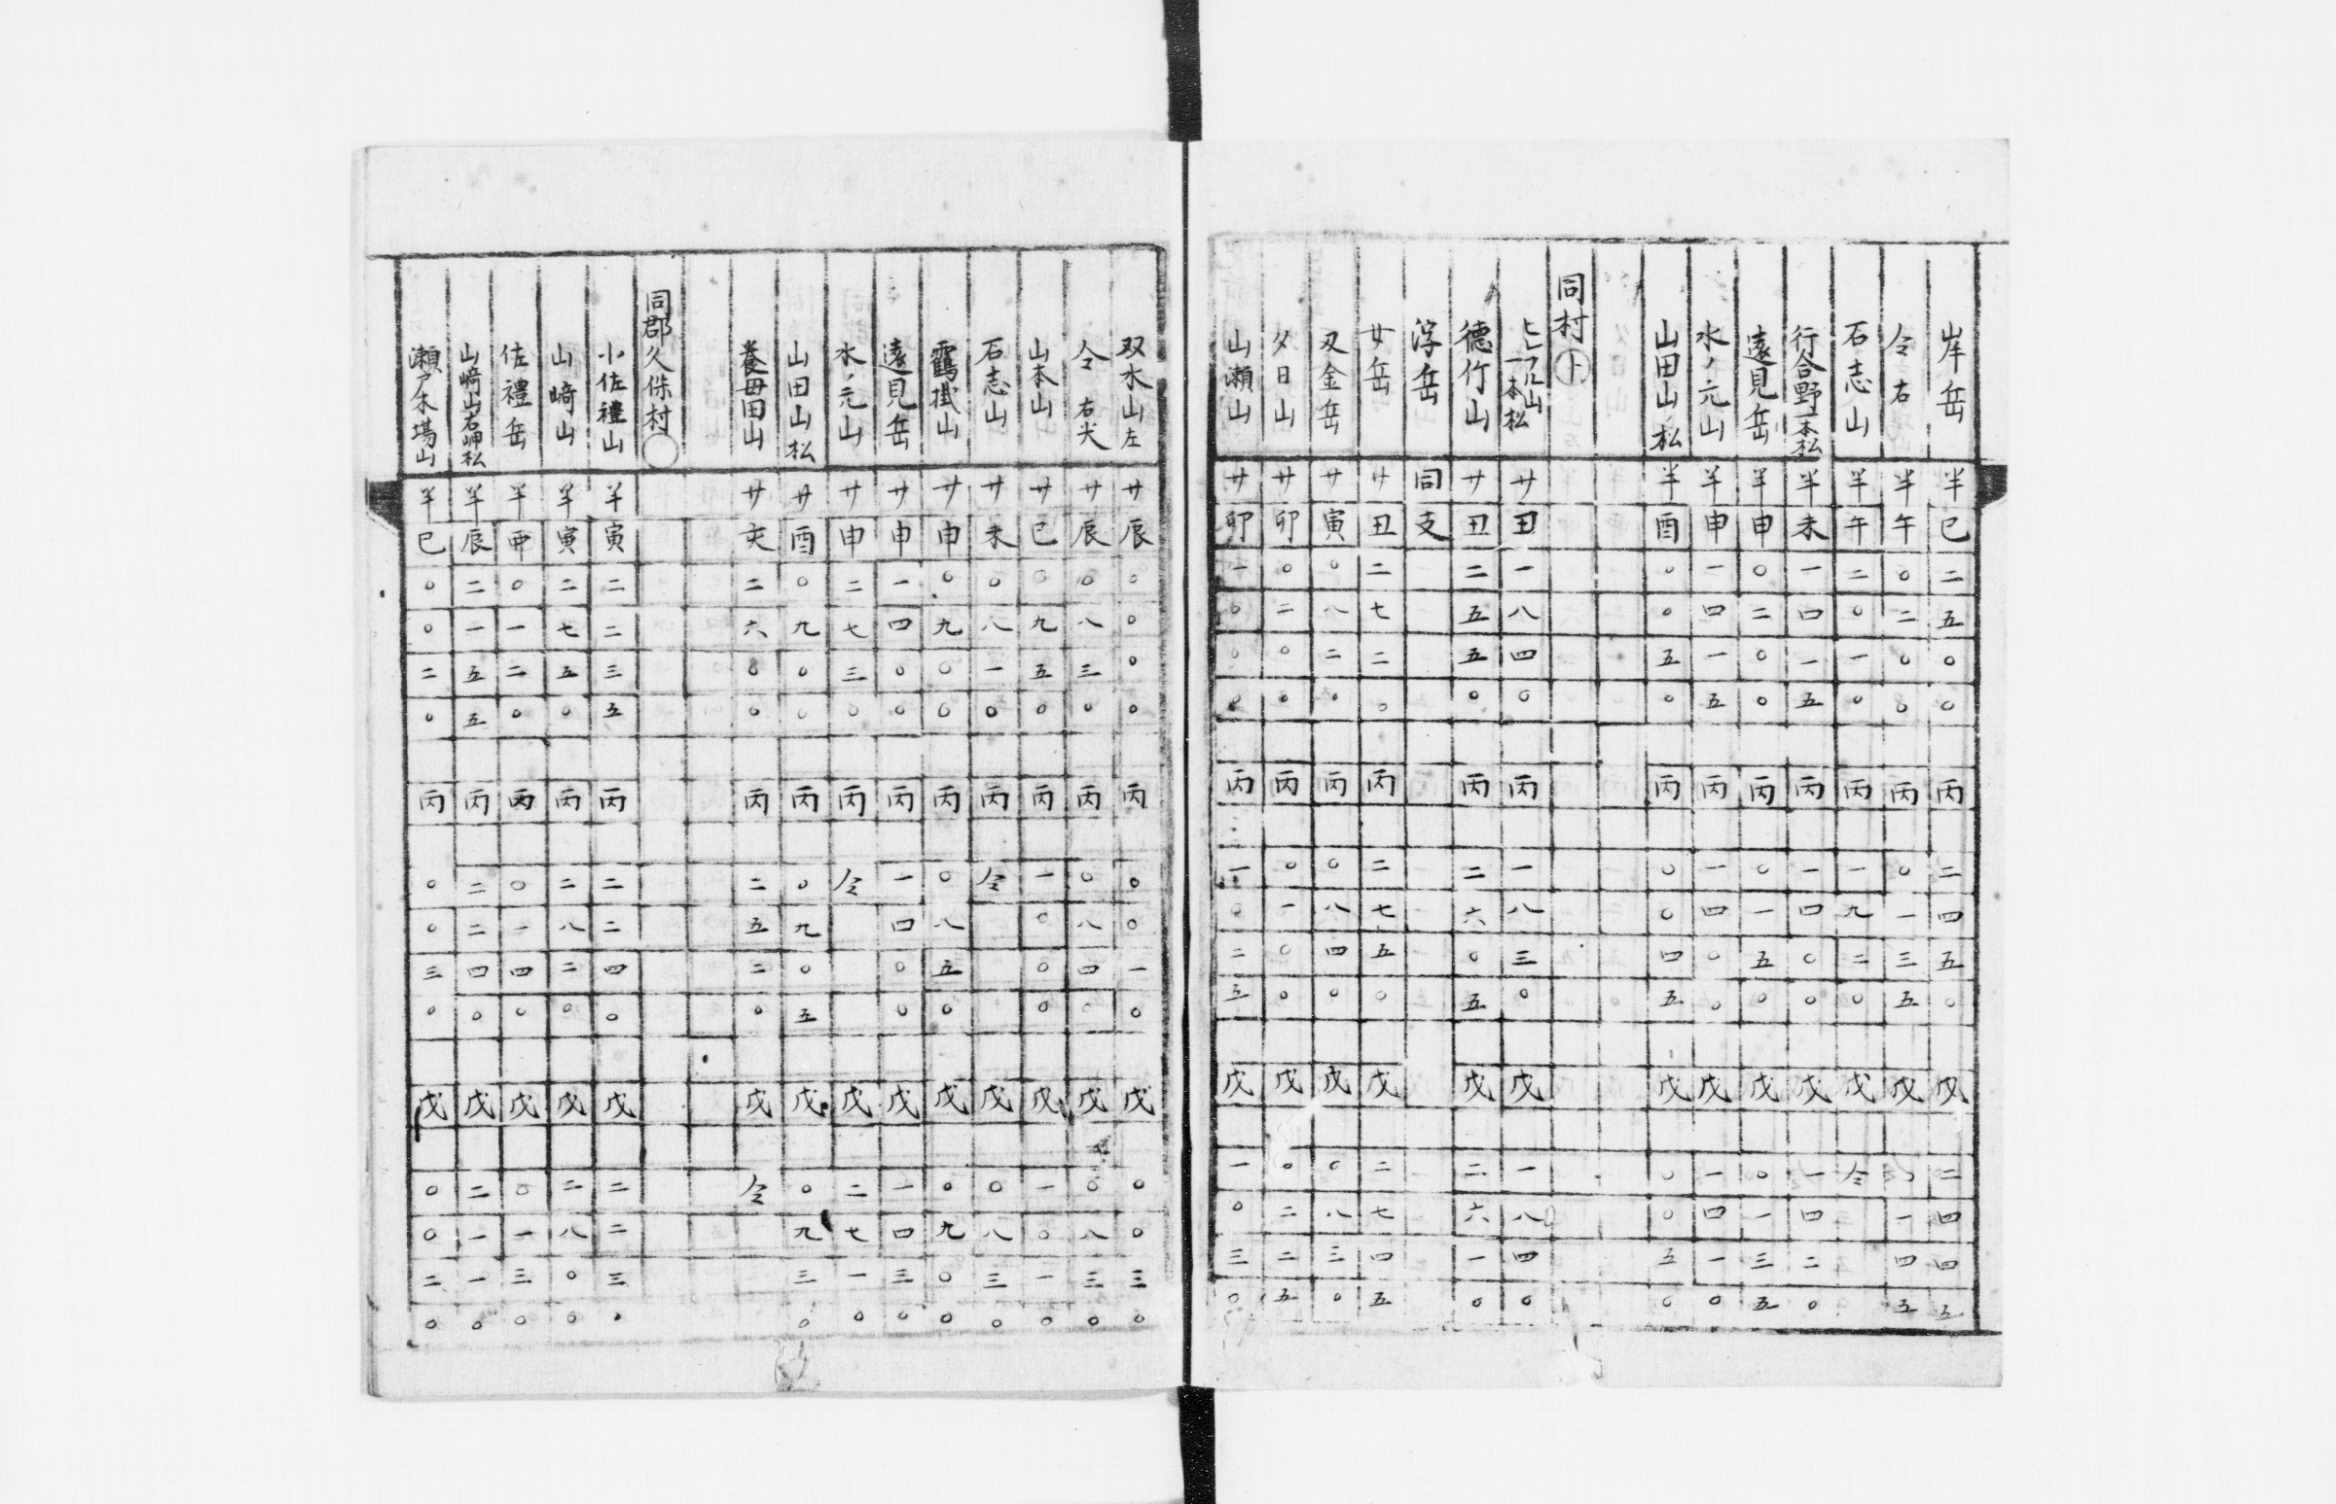 岸岳 半巳二五〇〇 丙 二四五〇 戊 二四四五
仝右 半午〇二〇〇 丙 〇一三五 戊 〇一四五
石志山 半午二〇一〇 丙 一九二〇 戊 仝
行合野一本松 半未一四一五 丙 一四〇〇 戊 一四二〇
遠見岳 半申〇二〇〇 丙 〇一五〇 戊 〇一三五
水ノ元山 半申一四一五 丙 一四〇〇 戊 一四一〇
山田山ノ松 半酉〇〇五〇 丙 〇〇四五 戊 〇〇五〇
同村㋣
ヒレフル山一本松 廿丑一八四〇 丙 一八三〇 戊 一八四〇
徳竹山 廿丑二五五〇 丙 二六〇五 戊 二六一〇
浮岳 同支
女岳 廿丑二七二〇 丙 二七五〇 戊 二七四五
刄金岳 廿寅〇八二〇 丙 〇八四〇 戊 〇八三〇
夕日山 廿卯〇二〇〇 丙 〇一〇〇 戊 〇二二五
山瀬山 廿卯一〇〇〇 丙 一〇二五 戊 一〇三〇
双水山左 廿辰〇〇〇〇 丙 〇〇一〇 戊 〇〇三〇
仝右犬 廿辰〇八三〇 丙 〇八四〇 戊 〇八三〇
山本山 廿巳〇九五〇 丙 一〇〇〇 戊 一〇一〇
石志山 廿未〇八一〇 丙 仝 戊 〇八三〇
靏掛山 廿申〇九〇〇 丙 〇八五〇 戊 〇九〇〇
遠見岳 廿申一四〇〇 丙 一四〇〇 戊 一四三〇
水ノ元山 廿申二七三〇 丙 仝 戊 二七一〇
山田山松 廿酉〇九〇〇 丙 〇九〇五 戊 〇九三〇
養母田山 廿亥二六〇〇 丙 二五二〇 戊 仝
同郡久保村◯
小佐禮山 半寅二二三五 丙 二二四〇 戊 二二三〇
山﨑山 半寅二七五〇 丙 二八二〇 戊 二八〇〇
佐禮岳 半〇一二〇 丙 〇一四〇 戊 〇一三〇
山﨑山右岬松 半辰二一五五 丙 二二四〇 戊 二二一〇
瀬戸木場山 半巳〇〇二〇 丙 〇〇三〇 戊 〇〇二〇